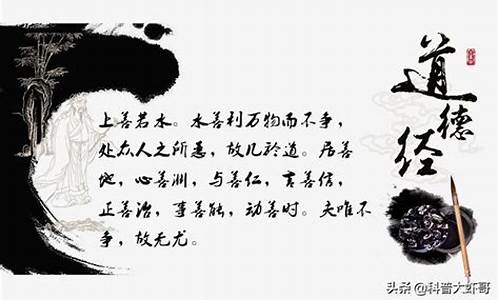 道德经
上善若水。水善利万物而不争，
处众人之所恶，故几於道。居善
地，心善渊，与善仁，言善信，
正善治，事善能，动善时。夫唯不
争，故无尤。
头条 @科普大虾哥